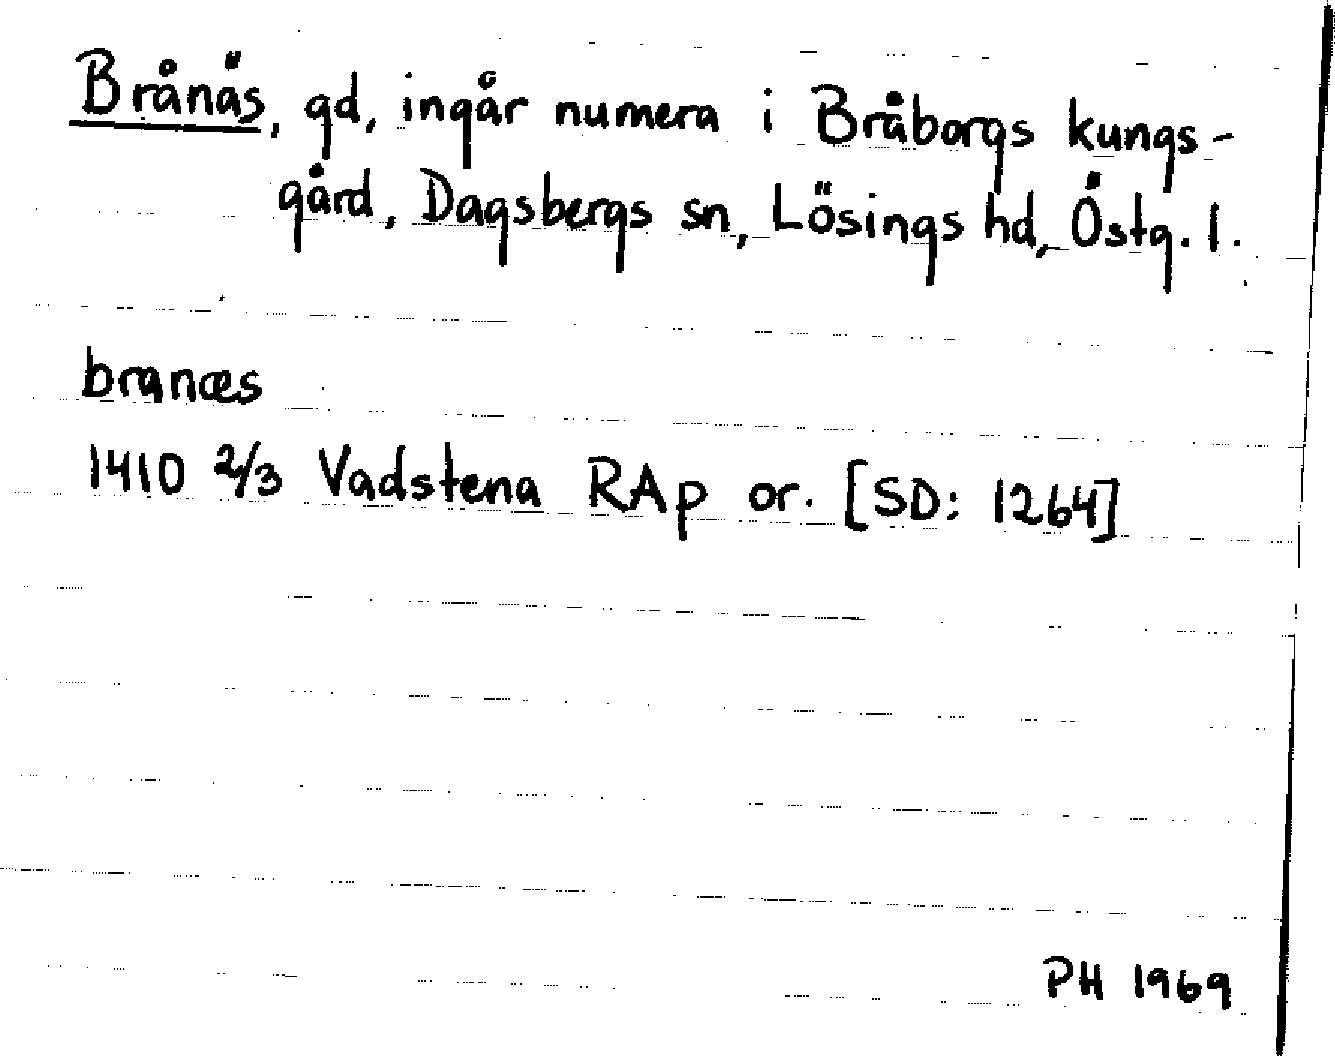 Brånäs, gd, ingår numera i Bråborgs kungs-
gård, Dagsbergs sn, Lösings hd, Östg. l.
branæs
1410 2/3 Vadstena RAp or. [SD: 1264]
PH 1969